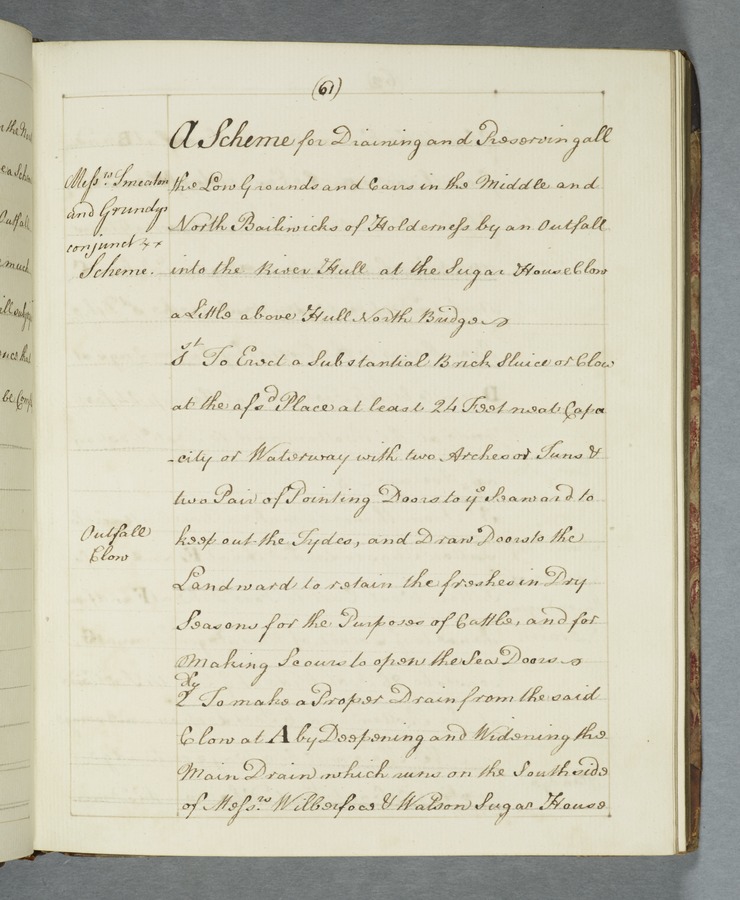 (61)
A Scheme for Draining and Preserving all
the Low Grounds and Carrs in the Middle and
North Bailiwicks of Holderness by an Outfall
into the River Hull at the Sugar House Clow
a Little above Hull North Bridge
1st To Erect a Substantial Brick Sluice or Clow
at the afsd Place at least 24 Feet neat Capa
-city or Waterway with two Arches or Tuns &
two Pair of Pointing Doors to ye Seaward to
keep out the Tydes, and Draw Doors to the
Landward to retain the freshes in Dry
Seasons for the Purposes of Cattle, and for
Making Scours to open the Sea Doors
2dly To make a Proper Drain from the said
Clow at A by Deepening and Widening the
Main Drain which runs on the South side
of Messrs Wilberfoce & Watson Sugar House
Messrs Smeaton
and Grundys
conjunct
Scheme.
Outfall
Clow